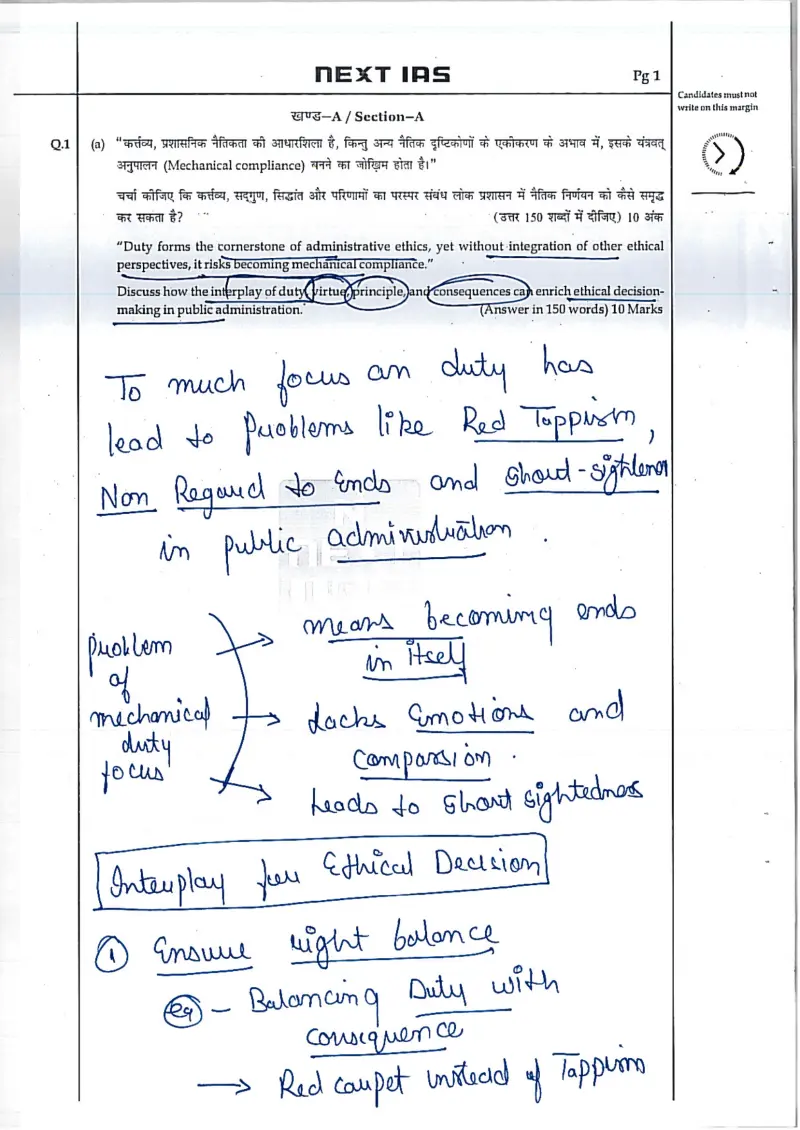 NEXT IAS
Pg 1
Candidates must not
write on this margin
खण्ड–A / Section–A
Q.1 (a) “कर्त्तव्य, प्रशासनिक नैतिकता की आधारशिला है, किन्तु अन्य नैतिक दृष्टिकोणों के एकीकरण के अभाव में, इसके यंत्रवत्
अनुपालन (Mechanical compliance) बनने का जोखिम होता है।”
चर्चा कीजिए कि कर्त्तव्य, सद्गुण, सिद्धांत और परिणामों का परस्पर संबंध लोक प्रशासन में नैतिक निर्णयन को कैसे समृद्ध
कर सकता है? (उत्तर 150 शब्दों में दीजिए) 10 अंक
“Duty forms the cornerstone of administrative ethics, yet without integration of other ethical
perspectives, it risks becoming mechanical compliance.”
Discuss how the interplay of duty, virtue, principle, and consequences can enrich ethical decision-
making in public administration. (Answer in 150 words) 10 Marks
To much focus on duty has
lead to problems like Red Tappism,
Non Regard to Ends and Short-sightness
in public administration.
problem
of
mechanical
duty
focus
means becoming ends
in itself
Lacks Emotions and
Compassion.
Leads to Short sightedness
Interplay for Ethical Decision
① Ensure right balance
eg – Balancing Duty with
consequence
→ Red carpet instead of Tappism